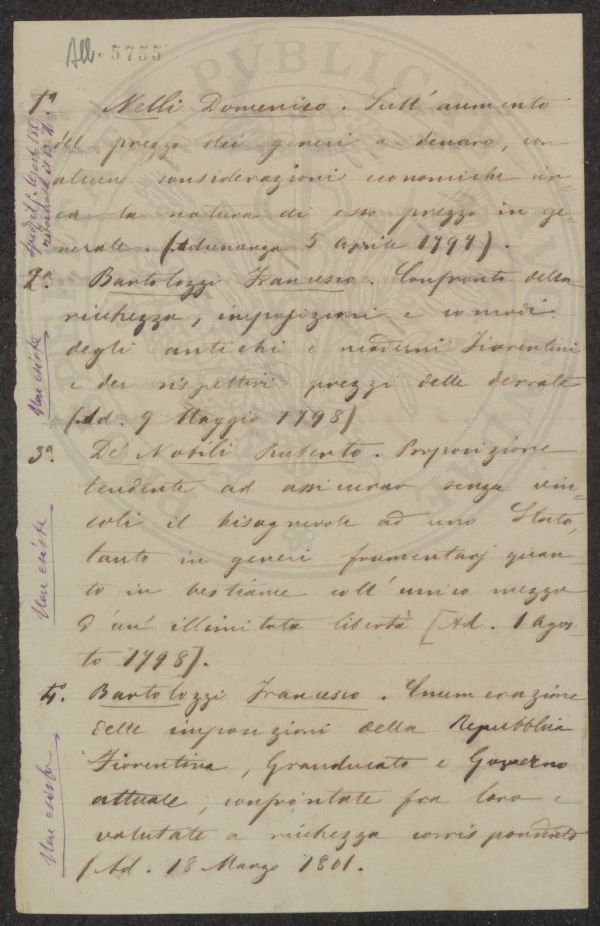 All. 5755
1.a Nelli Domenico. Sull' aumento
del prezzo dei generi a denaro, con
alcune considerazioni economiche cir-
ca la natura di esso prezzo in ge-
nerale. (Adunanza 5 aprile 1797).
2.a Bartolozzi Francesco. Confronto della
ricchezza, imposizioni e comodi
degli antichi e moderni Fiorentini
e dei rispettivi prezzi delle derrate
(Ad. 9 Maggio 1798)
Non esiste
3.a De' Nobili Ruberto. Proposizione
tendente ad assicurar senza vin-
coli il bisognevole ad uno Stato,
tanto in generi frumentarj quan-
to in bestiame coll' unico mezzo
d'un' illimitata libertà [Ad. 1 agos-
to 1798].
Non esiste
4.a Bartolozzi Francesco. Enumerazione
delle imposizioni della Repubblica
Fiorentina, Granducato e Governo
attuale, confrontate fra loro e
valutate a ricchezza corrispondente
(Ad. 18 Marzo 1801.
Non esiste